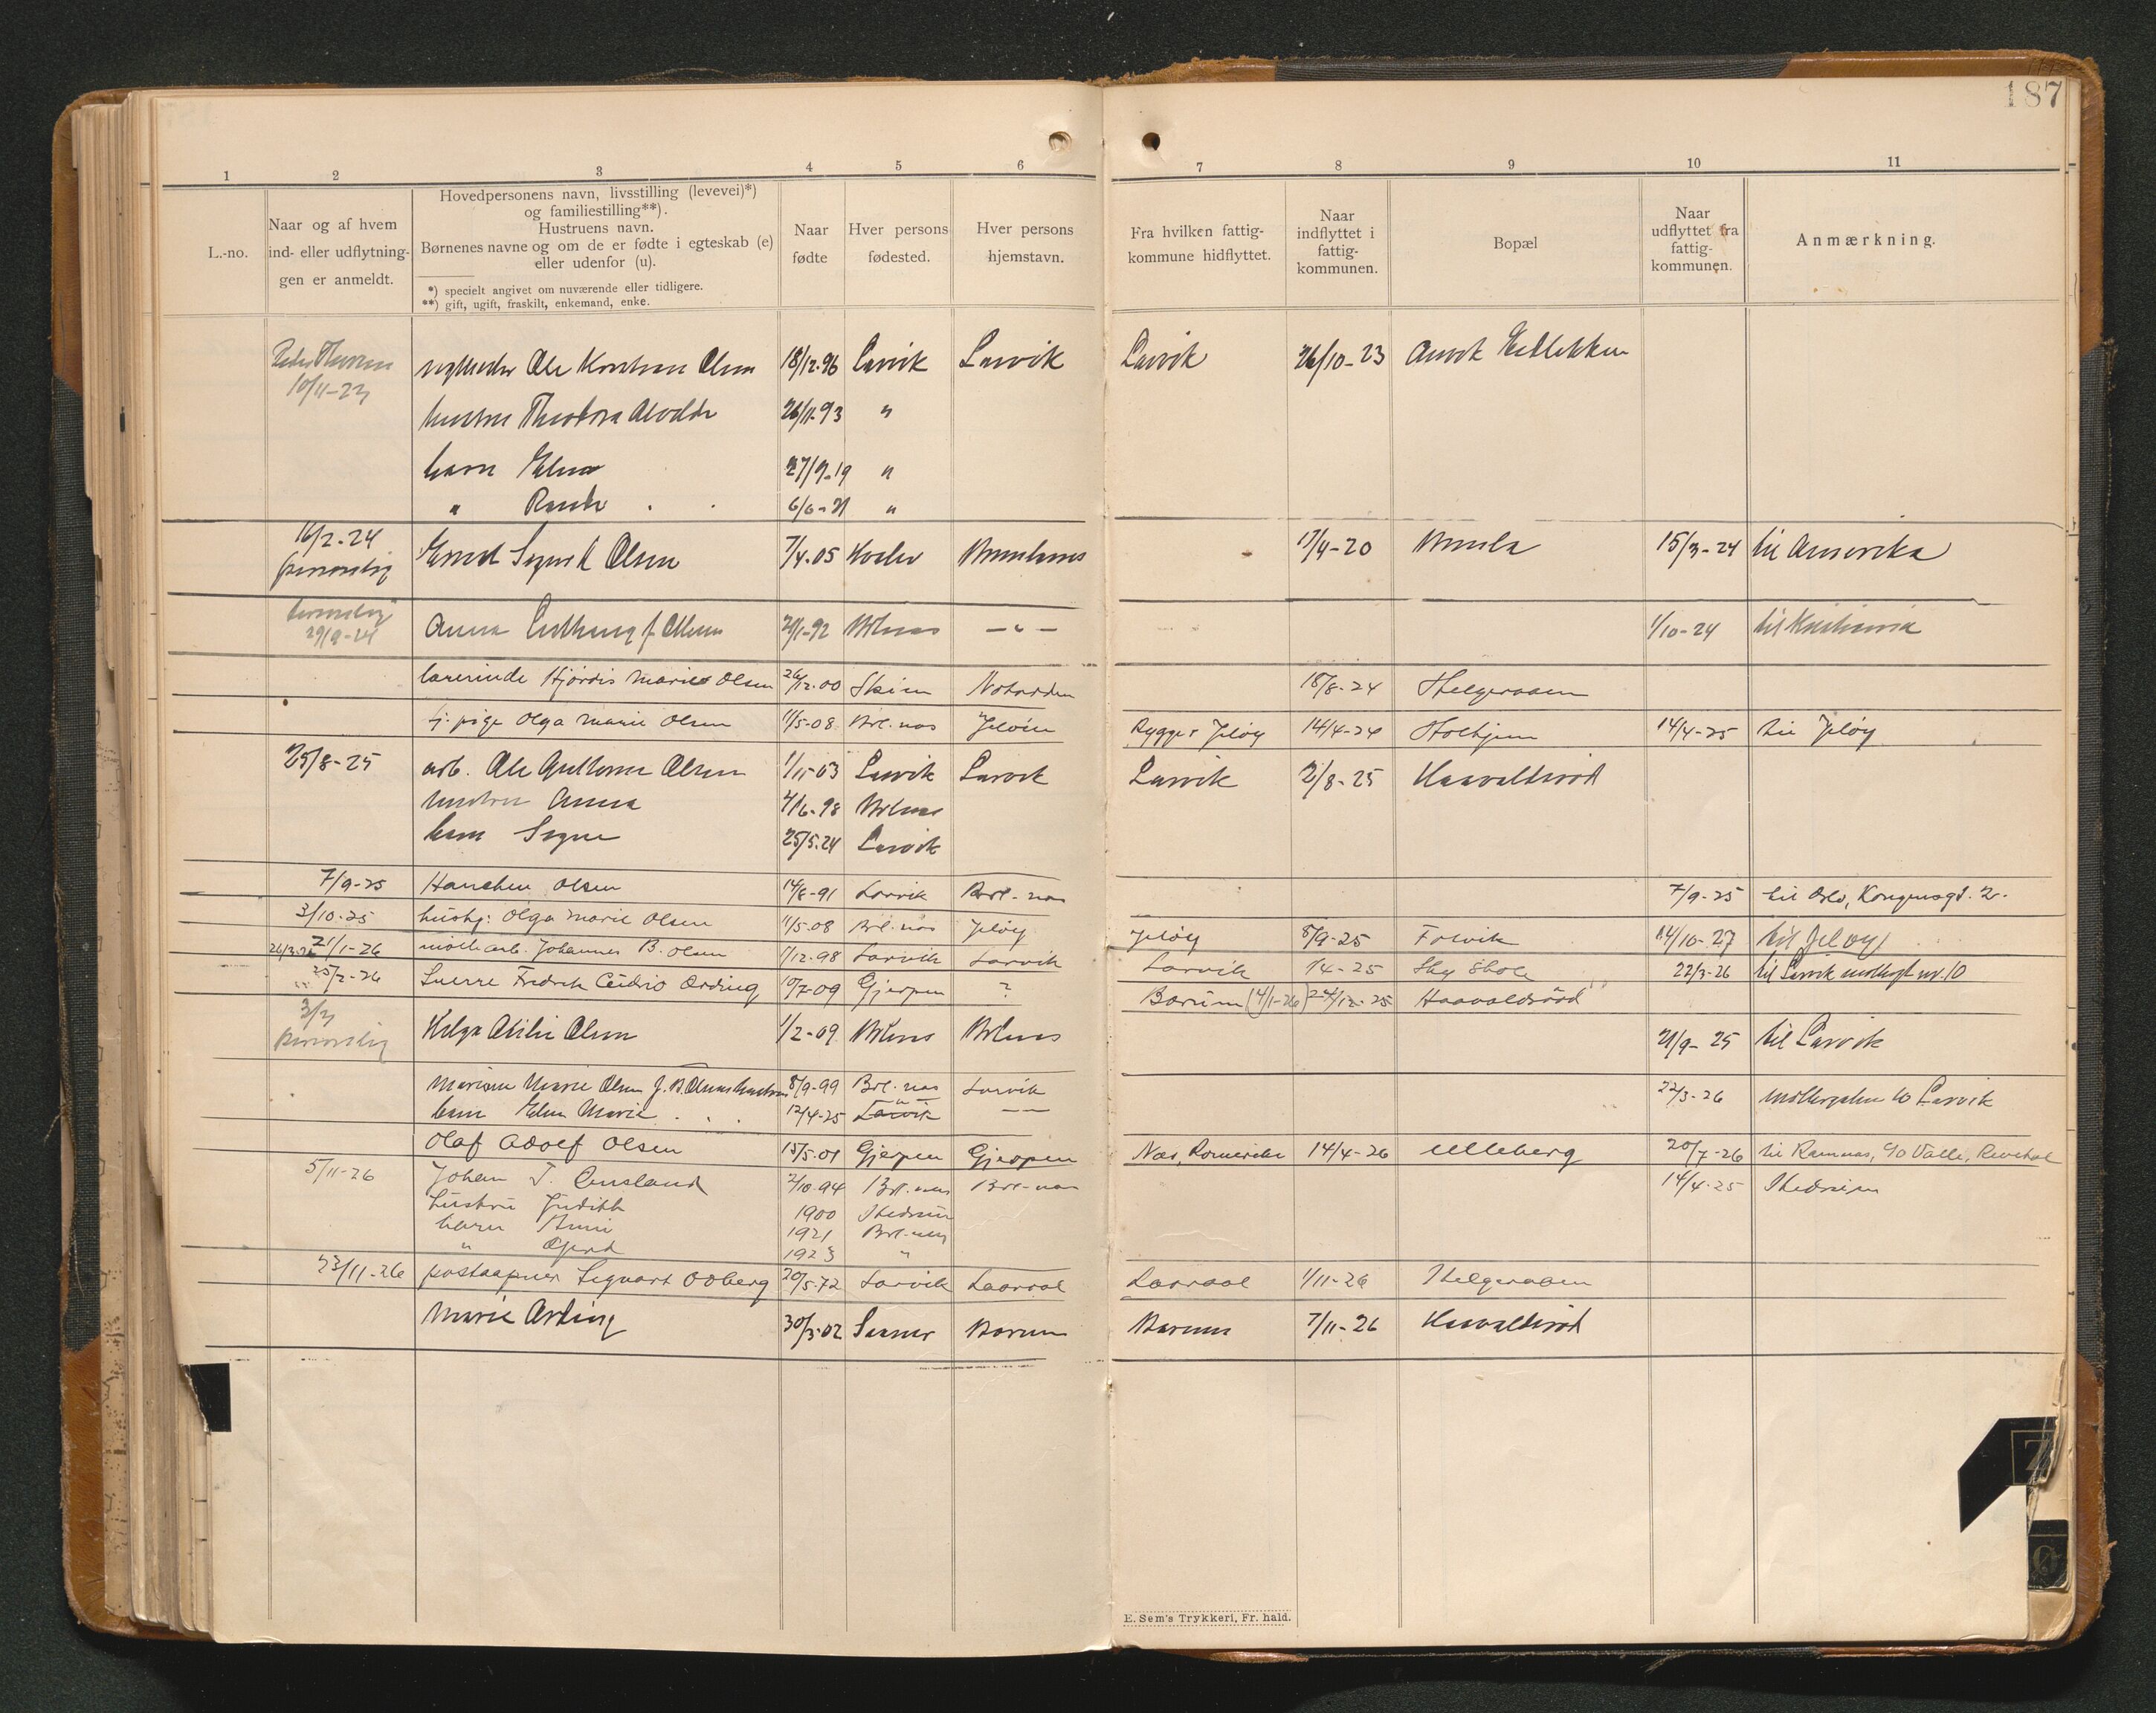 187
1 2 3 4 5 6 7 8 9 10 11
L.-no.
Naar og af hvem
ind- eller udflytnin-
gen er anmeldt.
Hovedpersonens navn, livsstilling (levevei)*)
og familiestilling**).
Hustruens navn.
Børnenes navne og om de er fødte i egteskab (e)
eller udenfor (u).
*) specielt angivet om nuværende eller tidligere.
**) gift, ugift, fraskilt, enkemand, enke.
Naar
fødte
Hver persons
fødested.
Hver persons
hjemstavn.
Fra hvilken fattig-
kommune hidflyttet.
Naar
indflyttet i
fattig-
kommunen.
Bopæl
Naar
udflyttet fra
fattig-
kommunen.
Anmærkning.
10/11-23 Ole Olsen 18/12.96 Larvik Larvik Larvik 26/10-23
hustru Theodora 26/11-93 "
barn 27/9-19 "
" 6/6-21 "
16/2-24 Olsen 7/4.05 Brunlanes 17/4-20 15/3-24 til Amerika
personlig
29/9-24 Anna 21/1-92 Brlnes — " — 1/10-24 til Kristiania
lærerinde Hjördis Marie Olsen 26/12.00 Skien Notodden 18/8-24 Helgeroaen
tj. pige Olga Marie Olsen 11/5-08 Brl.næs Jeløen Rygge Jeløy 14/4-24 Holtjern 14/4-25 til Jeløy
25/8-25 arb. Ole Guttorm Olsen 1/11-03 Larvik Larvik Larvik 2/8-25 Haavaldsröd
hustru Anna 4/6-98 Brlnes
barn Signe 25/5.24 Larvik
7/9-25 Hanchen Olsen 14/8-91 Larvik Brl-næs 7/9-25 til Oslo, Kongensgt. 2.
3/10-25 hushj. Olga Marie Olsen 11/5-08 Brl.næs Jeløy Jeløy 8/9-25 Foevik 14/10-27 til Jeløy
21/1-26 mölle arb. Johannes B. Olsen 1/12-98 Larvik Larvik Larvik /4-25 Sky Skole 22/3-26 til Larvik möllegt nr. 10
25/2-26 Sverre Fredrik Ording 10/7-09 Gjerpen ? Bærum (4/1-26) 24/12-25 Haavaldsröd
personlig Helga Otilie Olsen 1/2-09 Brlnes Brlnes 21/9-25 til Larvik
Marie Olsen J. B. Olsens hustru 8/9-99 Brl.næs Larvik 22/3-26 Möllergaten 10 Larvik
barn Marie 12/4-25 Larvik — " —
Olaf Adolf Olsen 15/5.01 Gjerpen Gjerpen Næs, Romerike 14/4-26 Ulleberg 20/7-26 til Ramnæs, c/o Valle, Revetal
5/11-26 Johan T. 2/10.94 Brl.næs Brl-næs 14/4-25 Hedrum
hustru Judith 1900 Hedrum
barn 1921 Brl.næs
" Gerd 1923 "
23/11-26 postaapner Sigvart Odberg 20/5-72 Larvik Laardal Laardal 1/11-26 Helgeroaen
Marie Ording 30/3-02 Bærum Bærum 7/11-26 Haavaldsröd
E. Sem's Trykkeri, Fr. hald.
Z
Ø